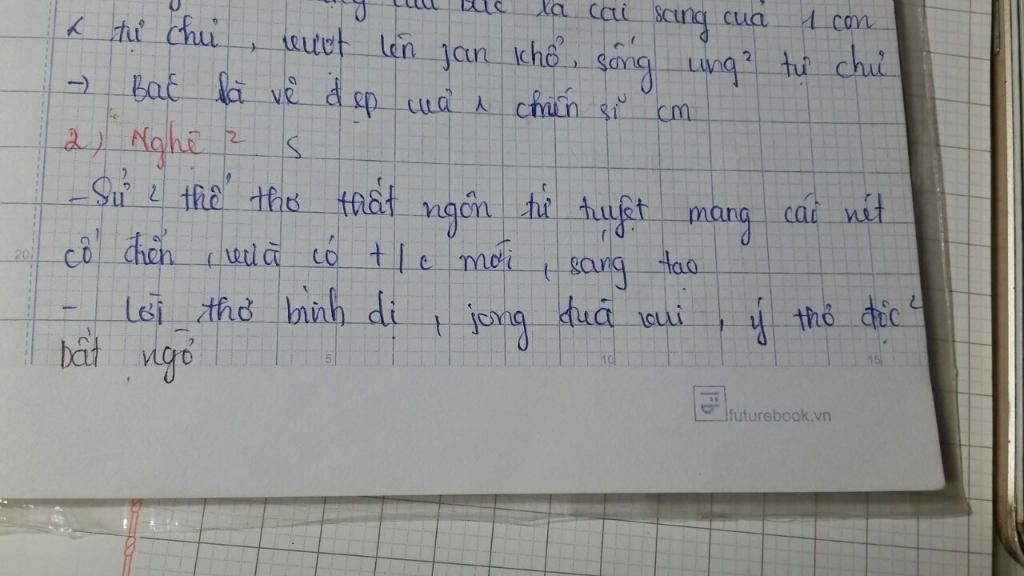 của Bác là cái sang của 1 con
< tự chủ, vượt lên jan khổ, sống ung² tự chủ
→ Bác là vẻ đẹp của 1 chiến sĩ cm
2) Nghệ ² S
- Sử 2 thể thơ thất ngôn tứ tuyệt mang cái nét
cổ điển, vừa có t/c mới, sáng tạo
- Lời thơ bình dị, jọng đùa vui, ý thơ độc²
bất ngờ
20
5
10
15
futurebook.vn